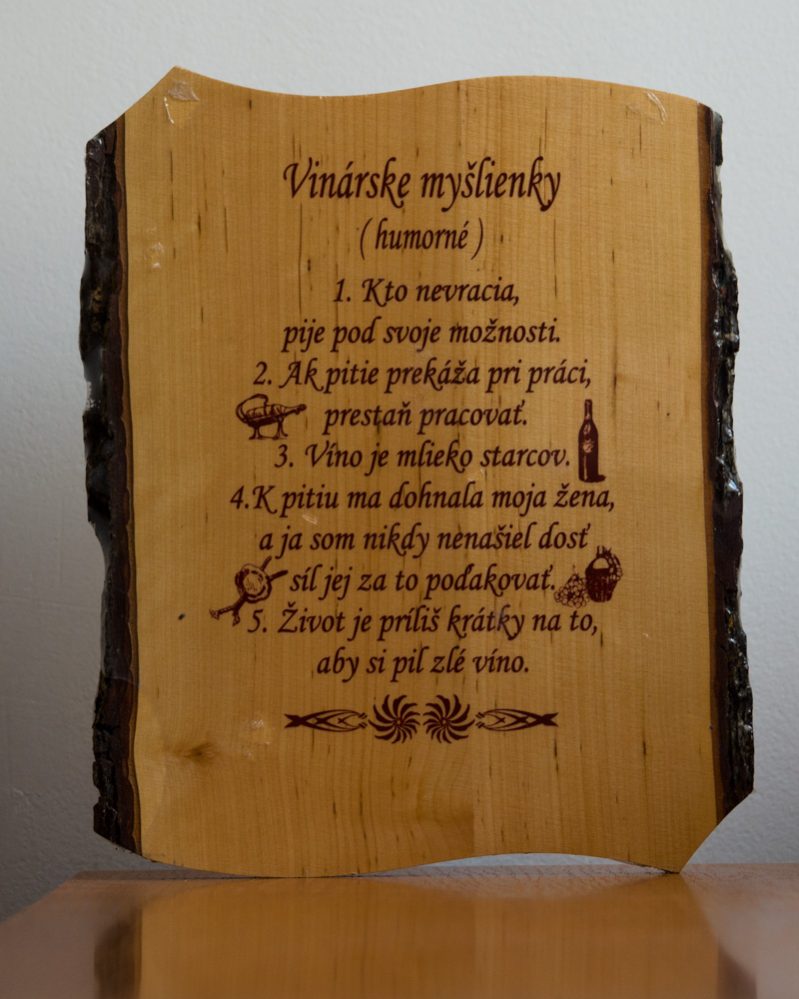 Vinárske myšlienky
( humorné )
1. Kto nevracia,
pije pod svoje možnosti.
2. Ak pitie prekáža pri práci,
prestaň pracovať.
3. Víno je mlieko starcov.
4.K pitiu ma dohnala moja žena,
a ja som nikdy nenašiel dosť
síl jej za to poďakovať.
5. Život je príliš krátky na to,
aby si pil zlé víno.